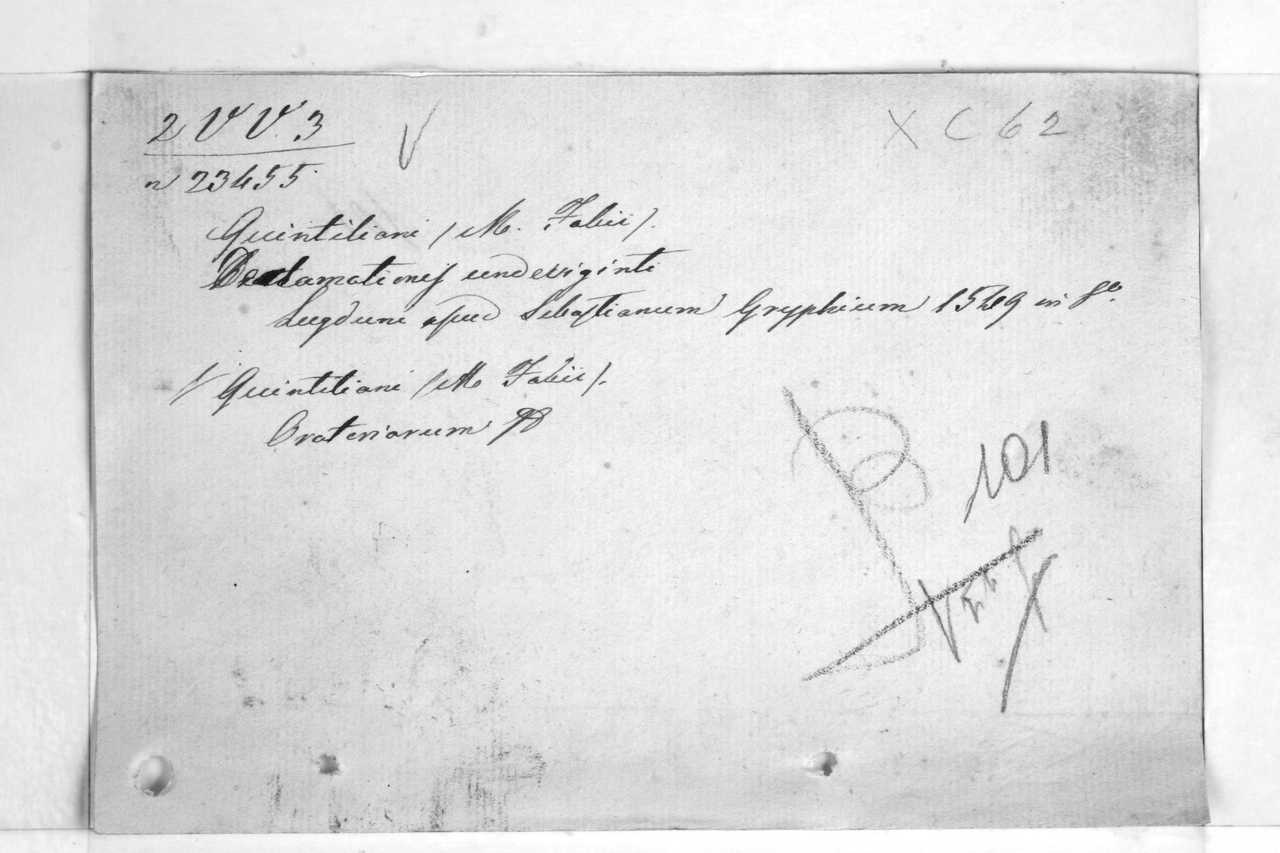 2 V V. 3
V
X C 62
n 23455
Quintiliani (M. Fabii).
Declamationes undeviginti
Lugduni apud Sebastianum Gryphium 1549 in 8º.
Quintiliani (M Fabii).
Oratoriarum
101